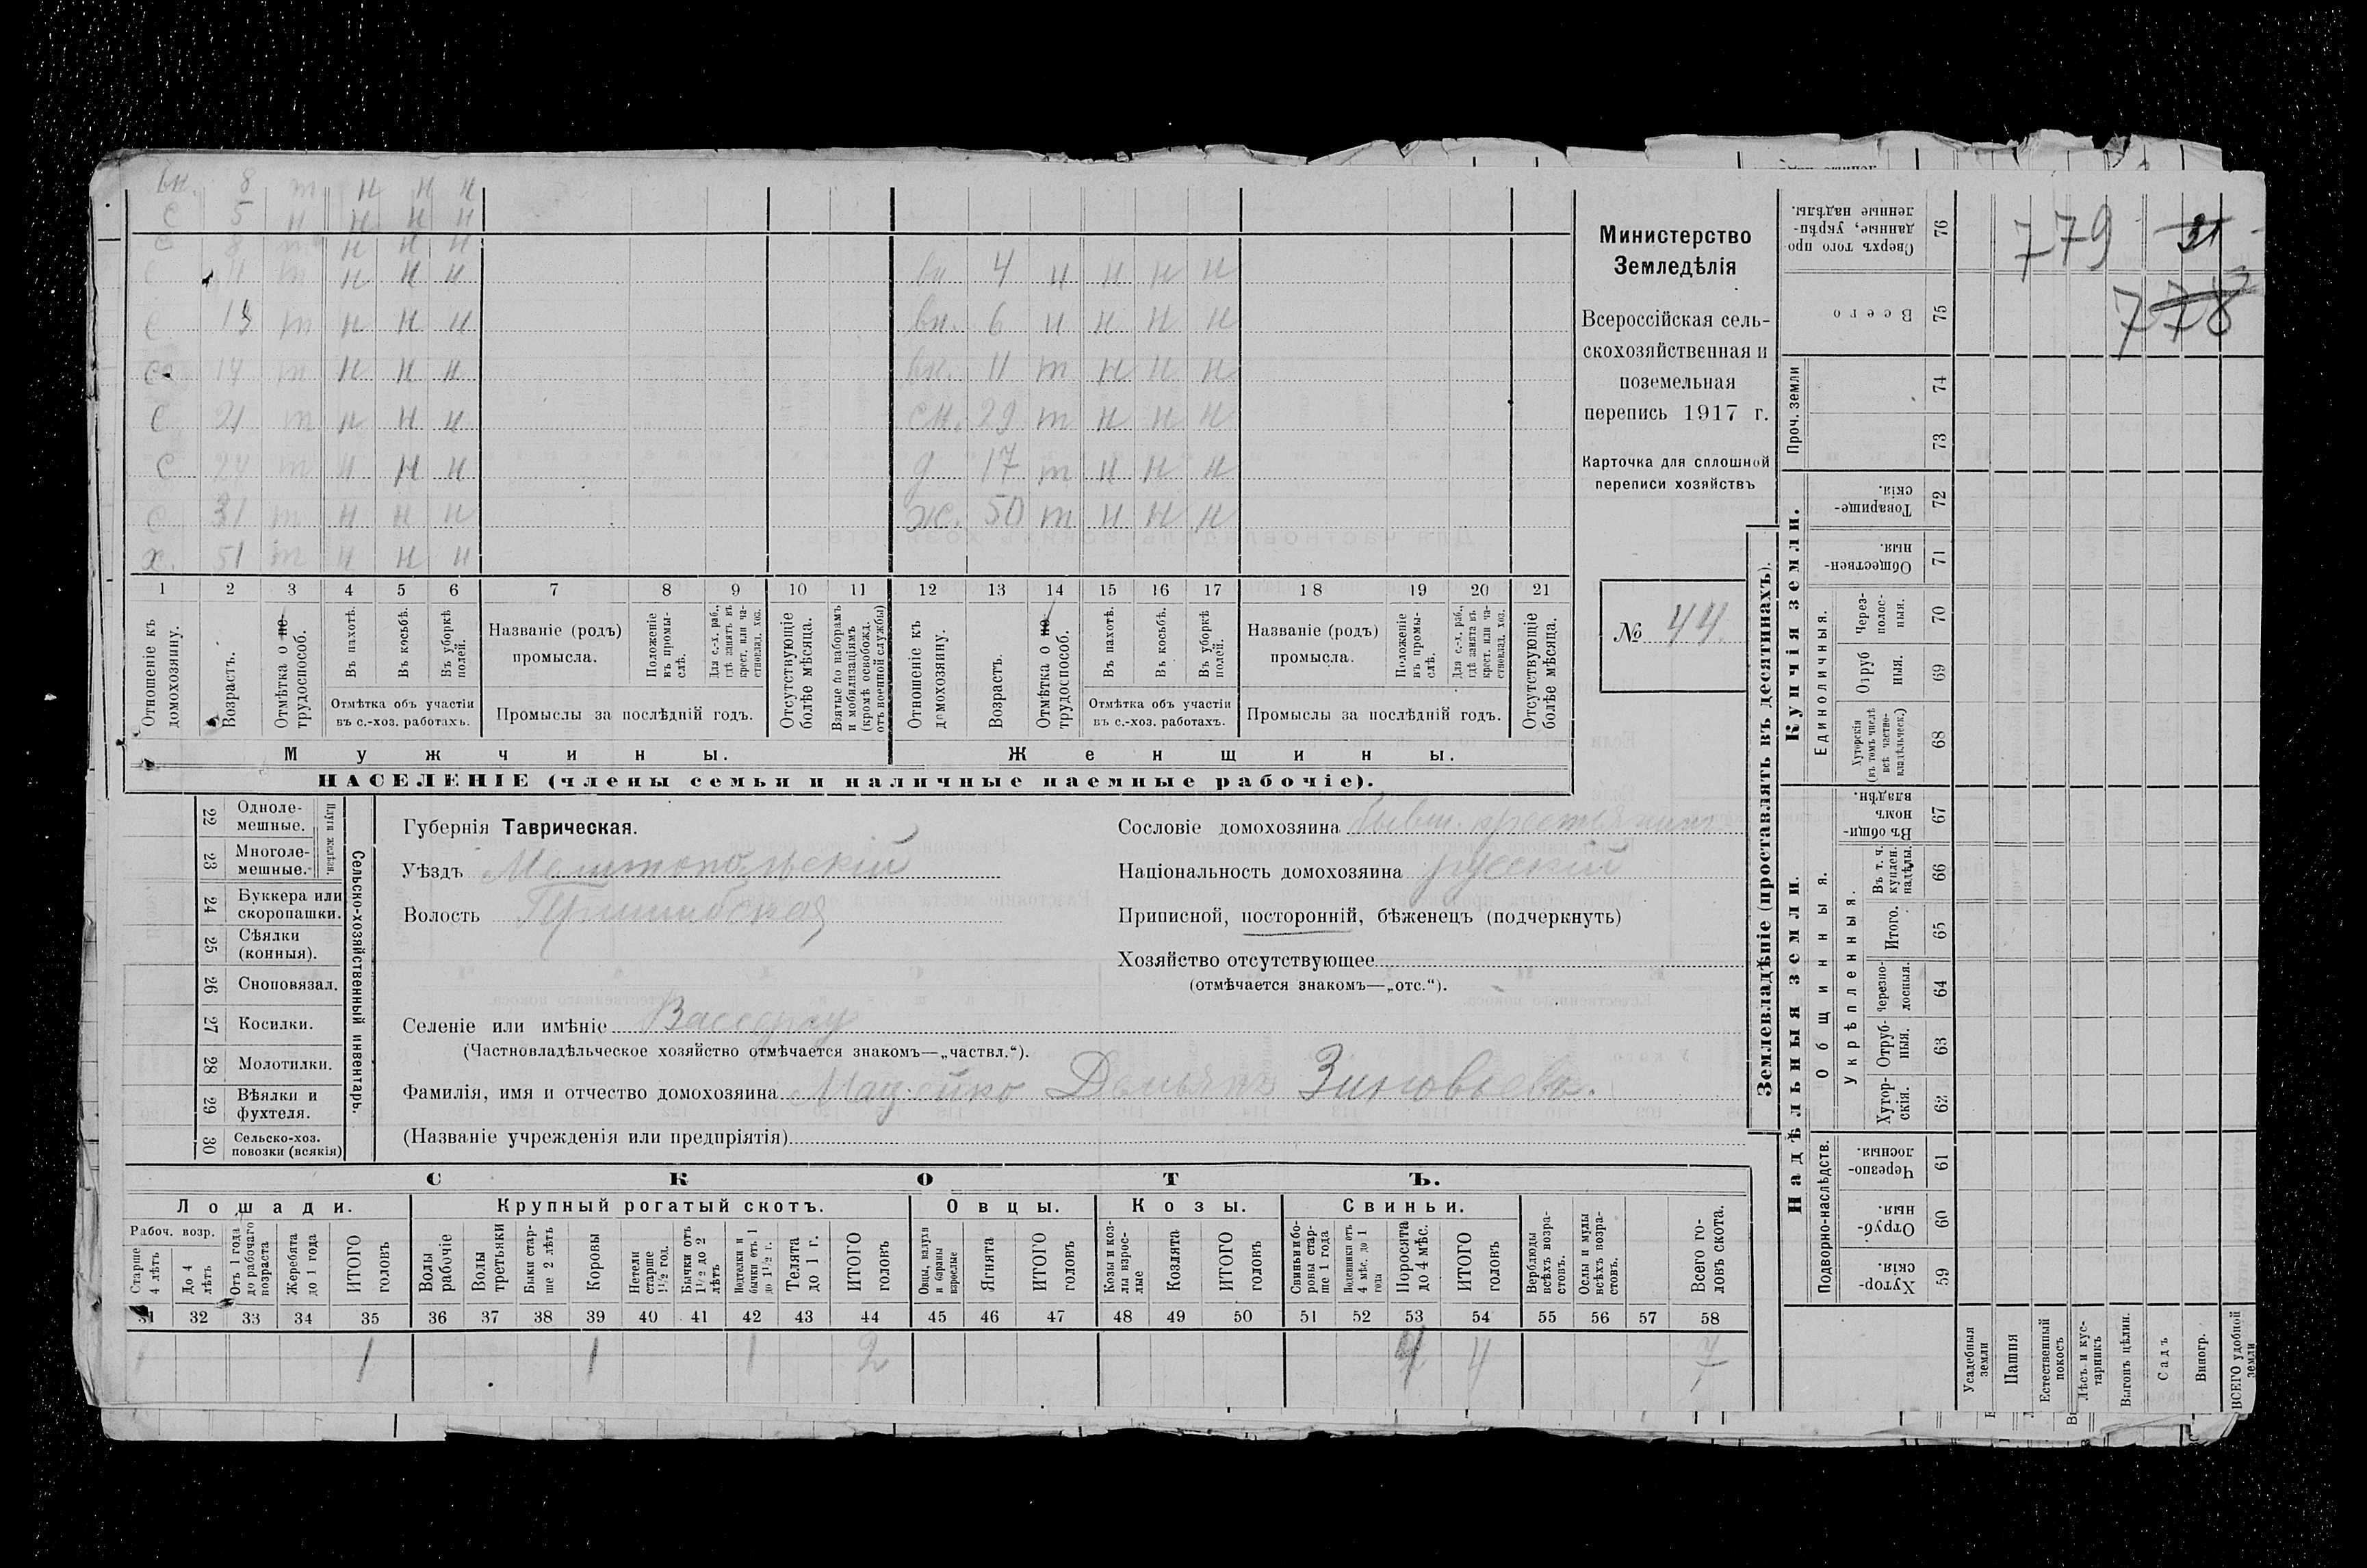 вн. 8 т н н н
с 5 н н н н
с 8 т н н н
с 11 т н н н
вн. 4 н н н н
с 13 т н н н
вн. 6 н н н н
с 14 т н н н
вн. 11 т н н н
с 21 т н н н
сн. 29 т н н н
с 24 т н н н
д 17 т н н н
с 31 т н н н
ж. 50 т н н н
х. 51 т н н н
1 2 3 4 5 6 7 8 9 10 11 12 13 14 15 16 17 18 19 20 21
Отношеніе къ домохозяину.
Возрастъ.
Отмѣтка о не-трудоспособ.
Въ пахотѣ.
Въ косьбѣ.
Въ уборкѣ полей.
Отмѣтка объ участіи
въ с.-хоз. работахъ.
Названіе (родъ)
промысла.
Положеніе въ промы-слѣ.
Для с.-х. раб., гдѣ занятъ въ крест. или ча-стновлад. хоз.
Промыслы за послѣдній годъ.
Отсутствующіе болѣе мѣсяца.
Взятые по наборамъ и мобилизаціямъ (кромѣ освобожд. отъ военной службы)
Отношеніе къ домохозяину.
Возрастъ.
Отмѣтка о не-трудоспособ.
Въ пахотѣ.
Въ косьбѣ.
Въ уборкѣ полей.
Отмѣтка объ участіи
въ с.-хоз. работахъ.
Названіе (родъ)
промысла.
Положеніе въ промы-слѣ.
Для с.-х. раб., гдѣ занята въ крест. или ча-стновлад. хоз.
Промыслы за послѣдній годъ.
Отсутствующіе болѣе мѣсяца.
Мужчины.
Женщины.
НАСЕЛЕНІЕ (члены семьи и наличные наемные рабочіе).
Министерство
Земледѣлія
Всероссійская сель-
скохозяйственная и
поземельная
перепись 1917 г.
Карточка для сплошной
переписи хозяйствъ
№ 44.
22 Одноле-мешные.
23 Многоле-мешные.
Плуги желѣзн.
24 Буккера или скоропашки.
25 Сѣялки (конныя).
26 Сноповязал.
27 Косилки.
28 Молотилки.
29 Вѣялки и фухтеля.
30 Сельско-хоз. повозки (всякія)
Сельско-хозяйственный инвентарь.
Губернія Таврическая.
Уѣздъ Мелитопольскій
Волость Пришибская
Сословіе домохозяина бывш. крестьянинъ
Національность домохозяина русскій
Приписной, посторонній, бѣженецъ (подчеркнуть)
Хозяйство отсутствующее
(отмѣчается знакомъ—„отс.“).
Селеніе или имѣніе Вассерау
(Частновладѣльческое хозяйство отмѣчается знакомъ—„частвл.“).
Фамилія, имя и отчество домохозяина Демьянъ Зиновьевъ.
(Названіе учрежденія или предпріятія)
СКОТЪ.
Лошади.
Крупный рогатый скотъ.
Овцы.
Козы.
Свиньи.
Рабоч. возр.
Старше 4 лѣтъ
До 4 лѣтъ
Отъ 1 года до рабочаго возраста
Жеребята до 1 года
ИТОГО головъ
Волы рабочіе
Волы третьяки
Быки стар-ше 2 лѣтъ
Коровы
Нетели старше 1½ год.
Бычки отъ 1½ до 2 лѣтъ
Подтелки и бычки отъ 1 до 1½ г.
Телята до 1 г.
ИТОГО головъ
Овцы, валухи и бараны взрослые
Ягнята
ИТОГО головъ
Козы и коз-лы взрос-лые
Козлята
ИТОГО головъ
Свиньи и бо-ровы стар-ше 1 года
Подсвинки отъ 4 мѣс. до 1 года
Поросята до 4 мѣс.
ИТОГО головъ
Верблюды всѣхъ возра-стовъ.
Ослы и мулы всѣхъ возра-стовъ.
Всего го-ловъ скота.
31 32 33 34 35 36 37 38 39 40 41 42 43 44 45 46 47 48 49 50 51 52 53 54 55 56 57 58
1 1 1 1 2 4 4 7
Землевладѣніе (проставлять въ десятинахъ).
Купчія земли.
Надѣльныя земли.
Сверхъ того про-данные, укрѣп-ленные надѣлы. 76
Всего 75
Проч. земли 74
73
Товарище-скія. 72
Обществен-ныя. 71
Единоличныя.
Через-полос-ныя. 70
Отруб-ныя. 69
Хуторскія (въ томъ числѣ всѣ частно-владѣльческ.) 68
Общинныя.
Въ общи-номъ владѣн. 67
Укрѣпленныя.
Въ т. ч. куплен. надѣлы. 66
Итого. 65
Черезпо-лосныя. 64
Отруб-ныя. 63
Хутор-скія. 62
Подворно-наслѣдств.
Черезпо-лосныя. 61
Отруб-ныя. 60
Хутор-скія. 59
Усадебныя земли
Пашня
Естественный покосъ
Лѣсъ и кус-тарникъ
Выгонъ цѣлин.
Садъ
Виногр.
ВСЕГО удобной земли
779
31
778